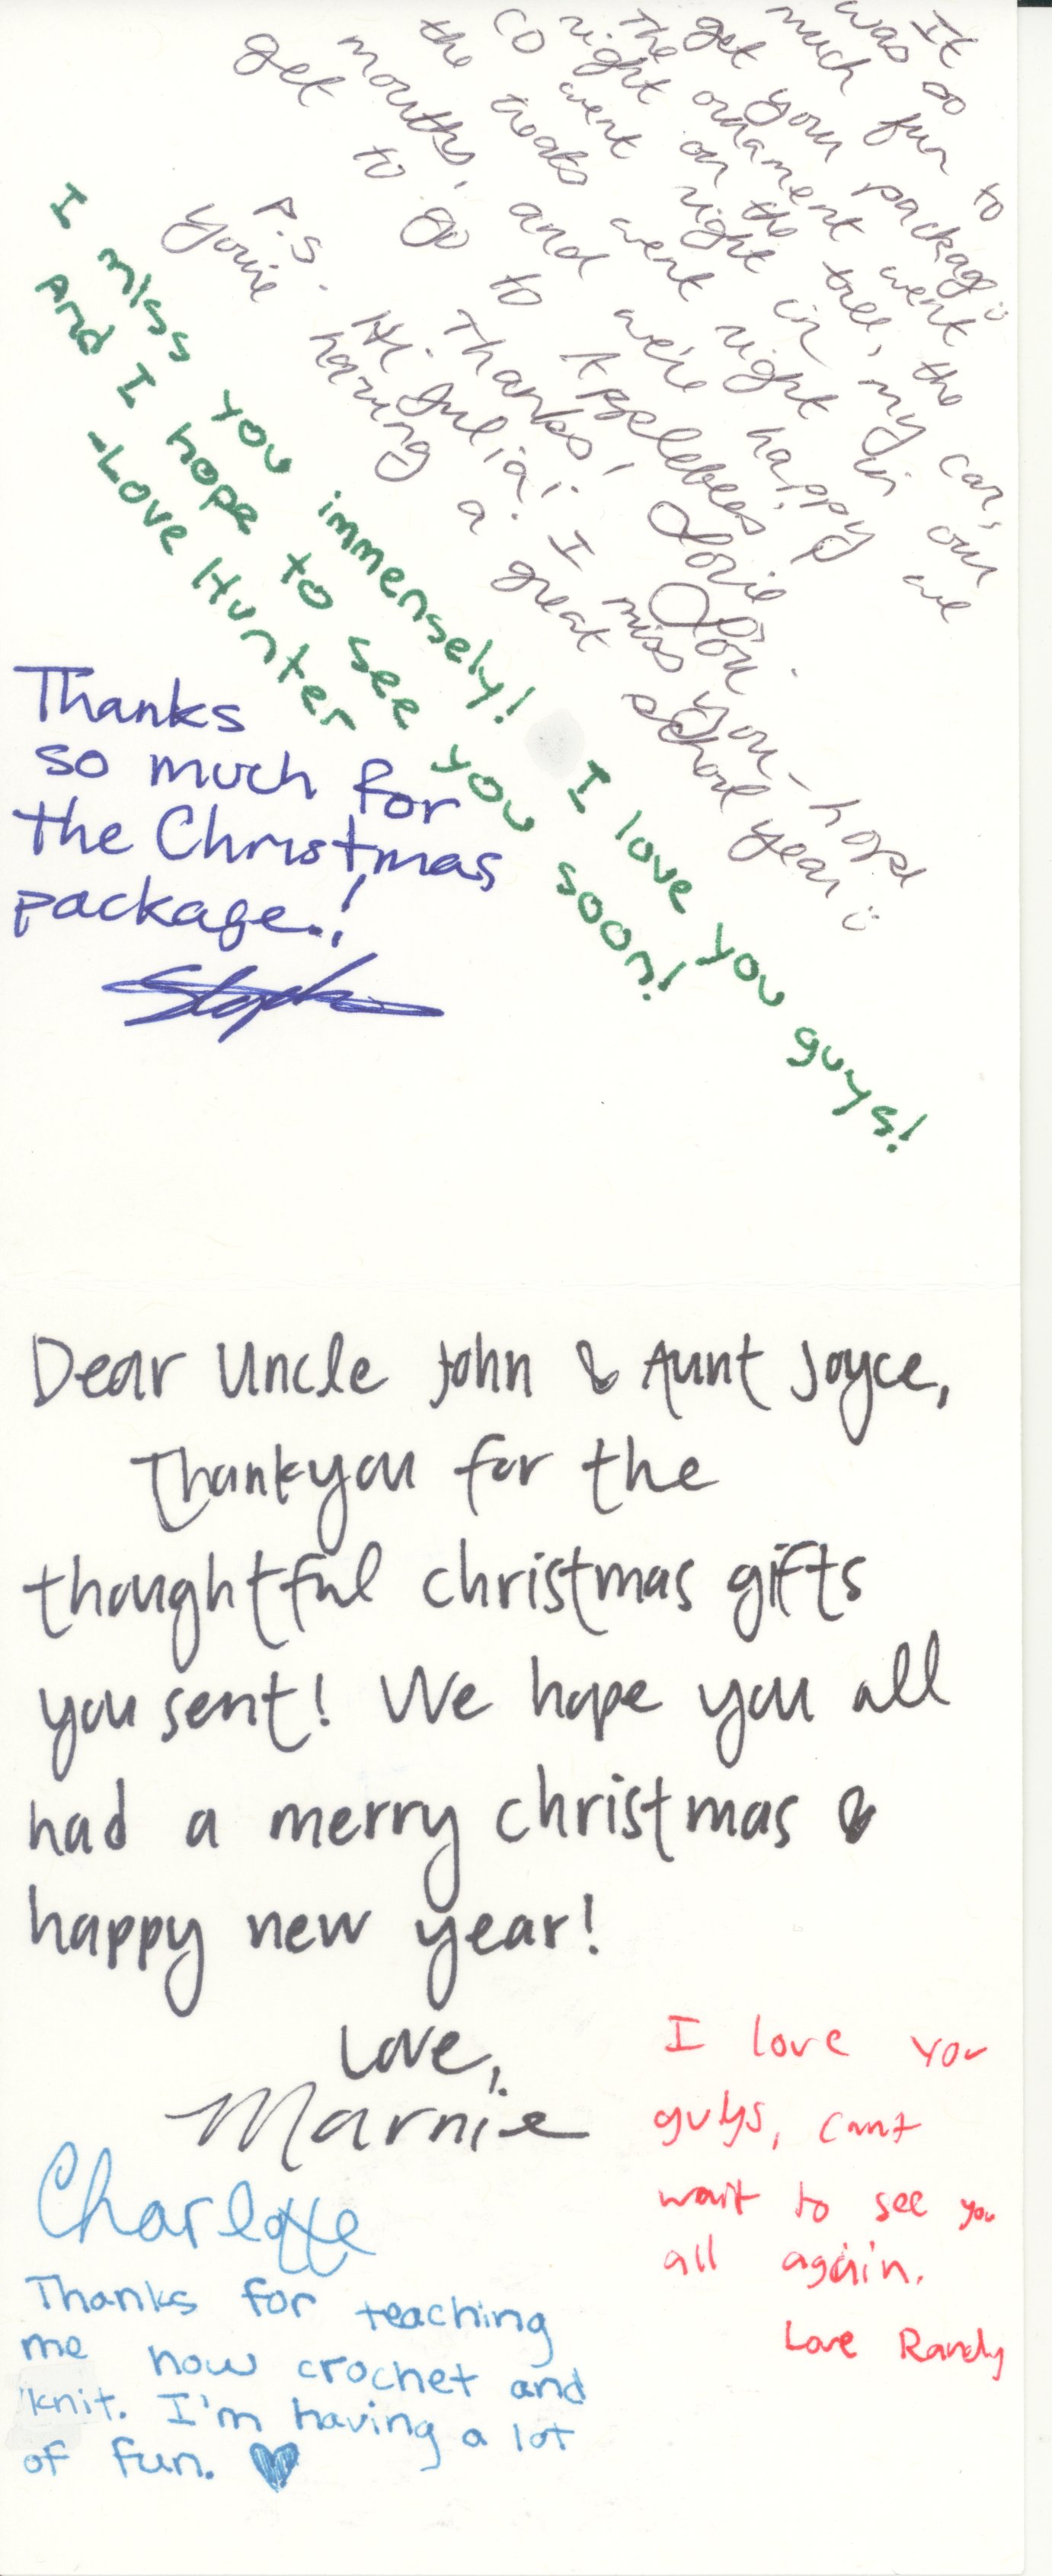 It
was so
much fun to
get your package :)
The ornament went
right on the tree, the
CD went right in my car,
the treats went right in our
mouths, and we're happy we
get to go to Applebees!
Thanks! Love Lori.
P.S. Hi Julia! I miss you - hope
you're having a great school year :)
I miss you immensely! I love you guys!
And I hope to see you soon!
-Love Hunter
Thanks
so much for
the Christmas
package!
Steph
Dear Uncle John & Aunt Joyce,
Thankyou for the
thoughtful christmas gifts
you sent! We hope you all
had a merry christmas &
happy new year!
Love,
Marnie
I love you
guys, cant
wait to see you
all again.
Love Randy
Charlotte
Thanks for teaching
me how crochet and
knit. I'm having a lot
of fun. ♥